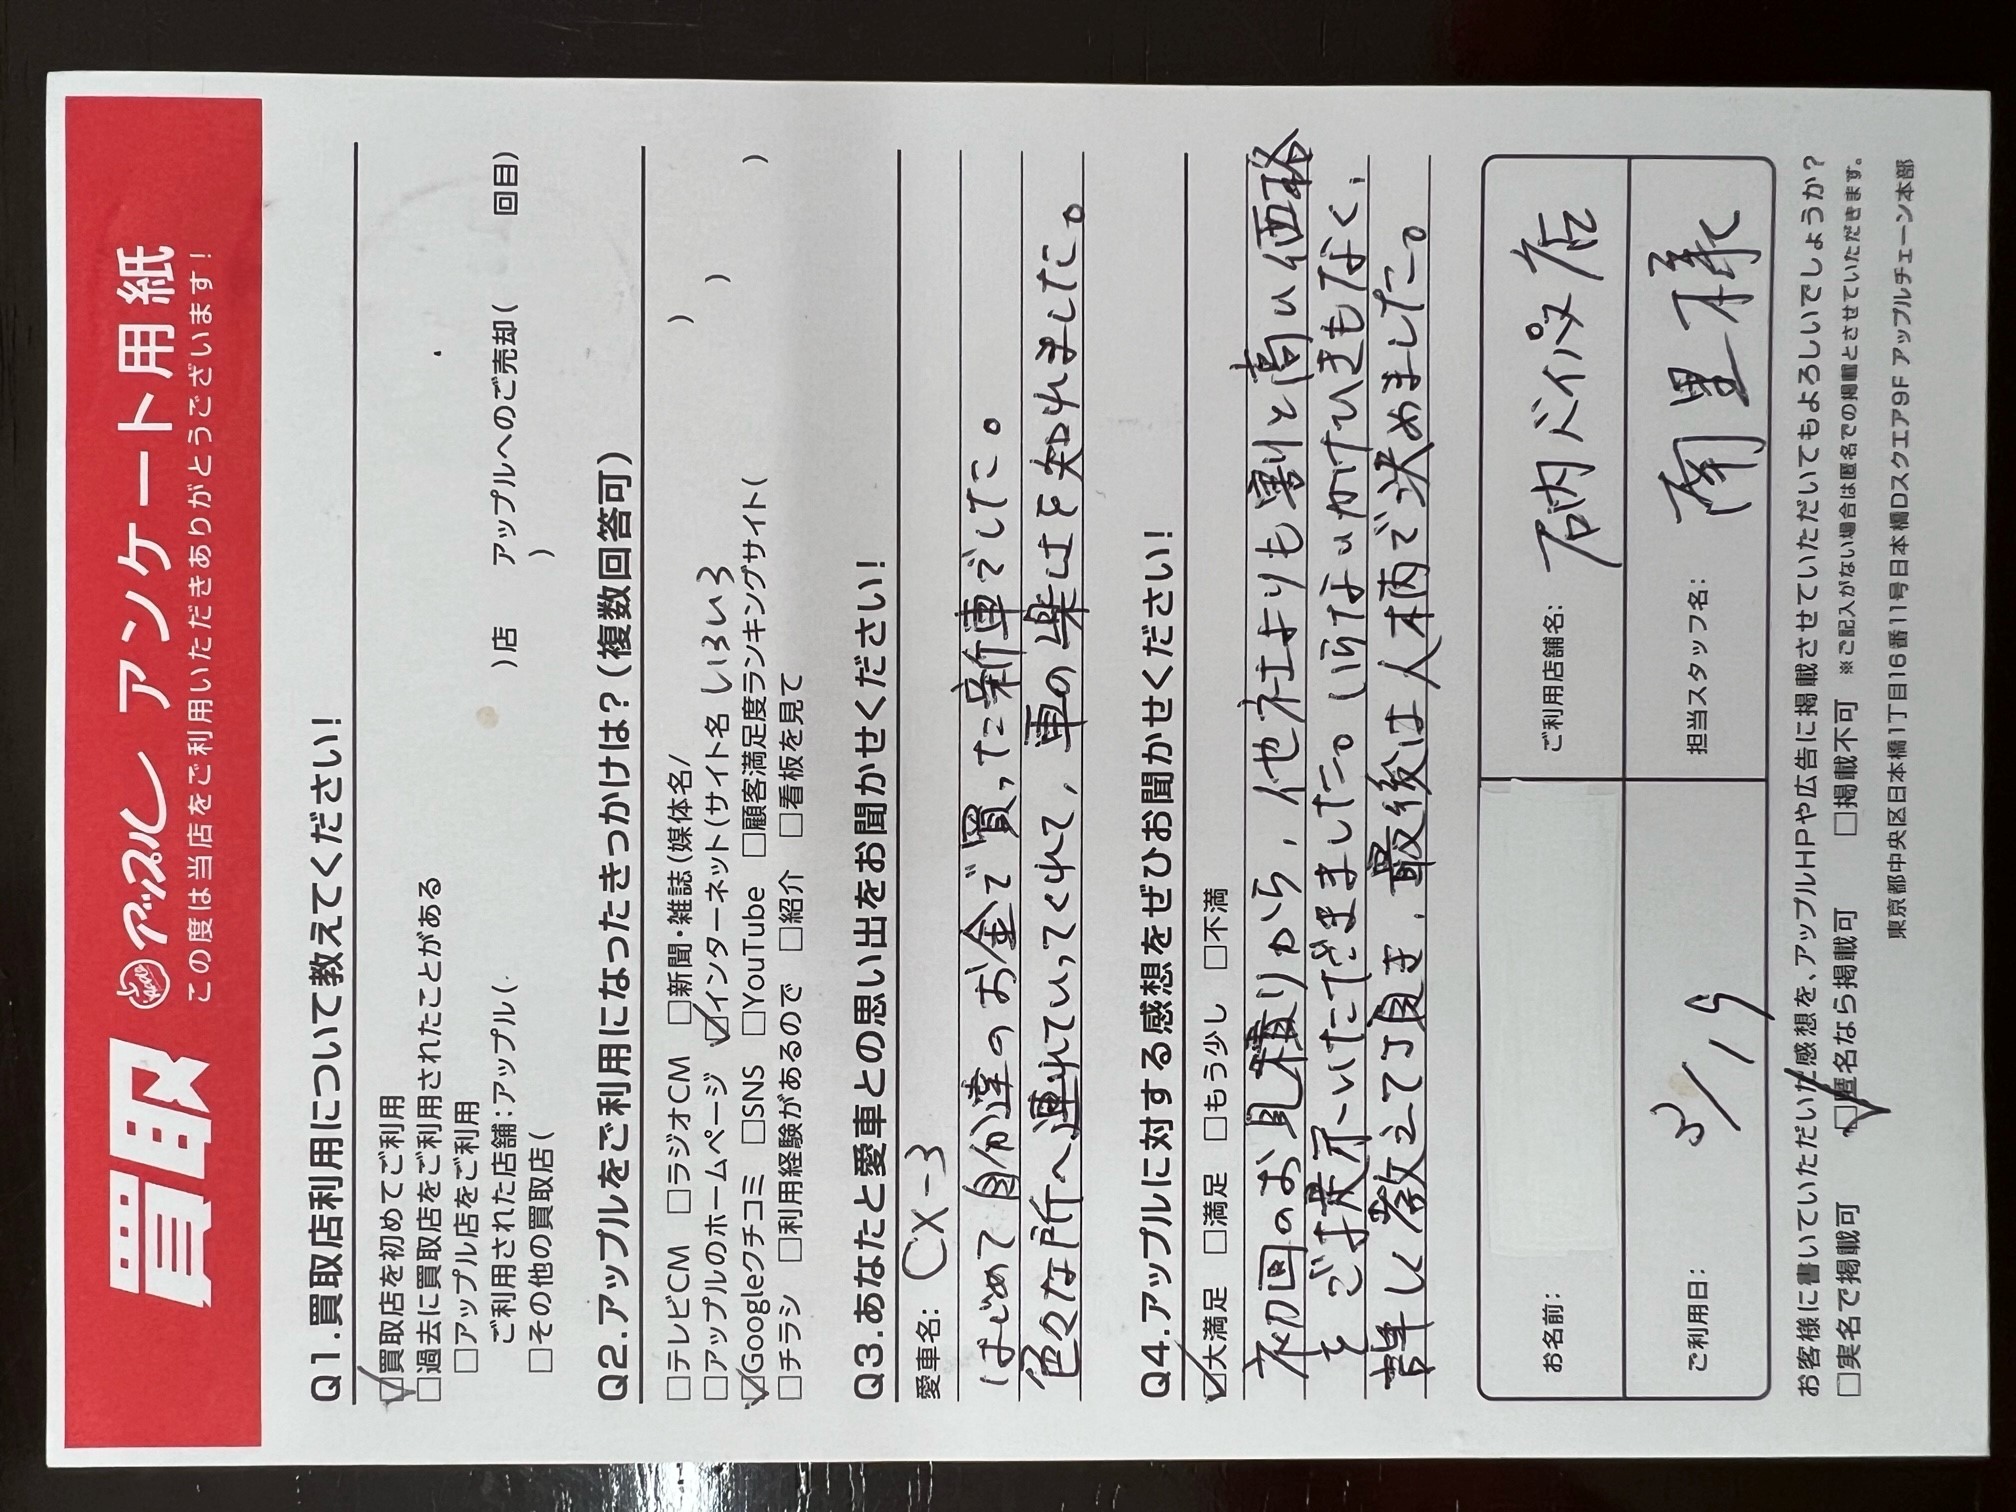 買取 アップル アンケート用紙
この度は当店をご利用いただきありがとうございます!
Q1.買取店利用について教えてください!
☑買取店を初めてご利用
□過去に買取店をご利用されたことがある
□アップル店をご利用
ご利用された店舗:アップル( )店 アップルへのご売却( 回目)
□その他の買取店( )
Q2.アップルをご利用になったきっかけは?(複数回答可)
□テレビCM □ラジオCM □新聞・雑誌(媒体名/ )
□アップルのホームページ ☑インターネット(サイト名 いろいろ )
☑Googleクチコミ □SNS □YouTube □顧客満足度ランキングサイト( )
□チラシ □利用経験があるので □紹介 □看板を見て
Q3.あなたと愛車との思い出をお聞かせください!
愛車名: CX-3
はじめて自分達のお金で買った新車でした。
色々な所へ連れていってくれて、車の楽しさを知れました。
Q4.アップルに対する感想をぜひお聞かせください!
☑大満足 □満足 □もう少し □不満
初回のお見積りから、他社よりも割と高い価格
をご提示いただきました。しらないかけひきもなく、
詳しく教えて頂き、最後は人柄で決めました。
お名前:
ご利用店舗名: 石内バイパス店
ご利用日: 5/19
担当スタッフ名: 南里 様
お客様に書いていただいた感想を、アップルHPや広告に掲載させていただいてもよろしいでしょうか?
□実名で掲載可 ☑匿名なら掲載可 □掲載不可 ※ご記入がない場合は匿名での掲載とさせていただきます。
東京都中央区日本橋1丁目16番11号日本橋Dスクエア9F アップルチェーン本部